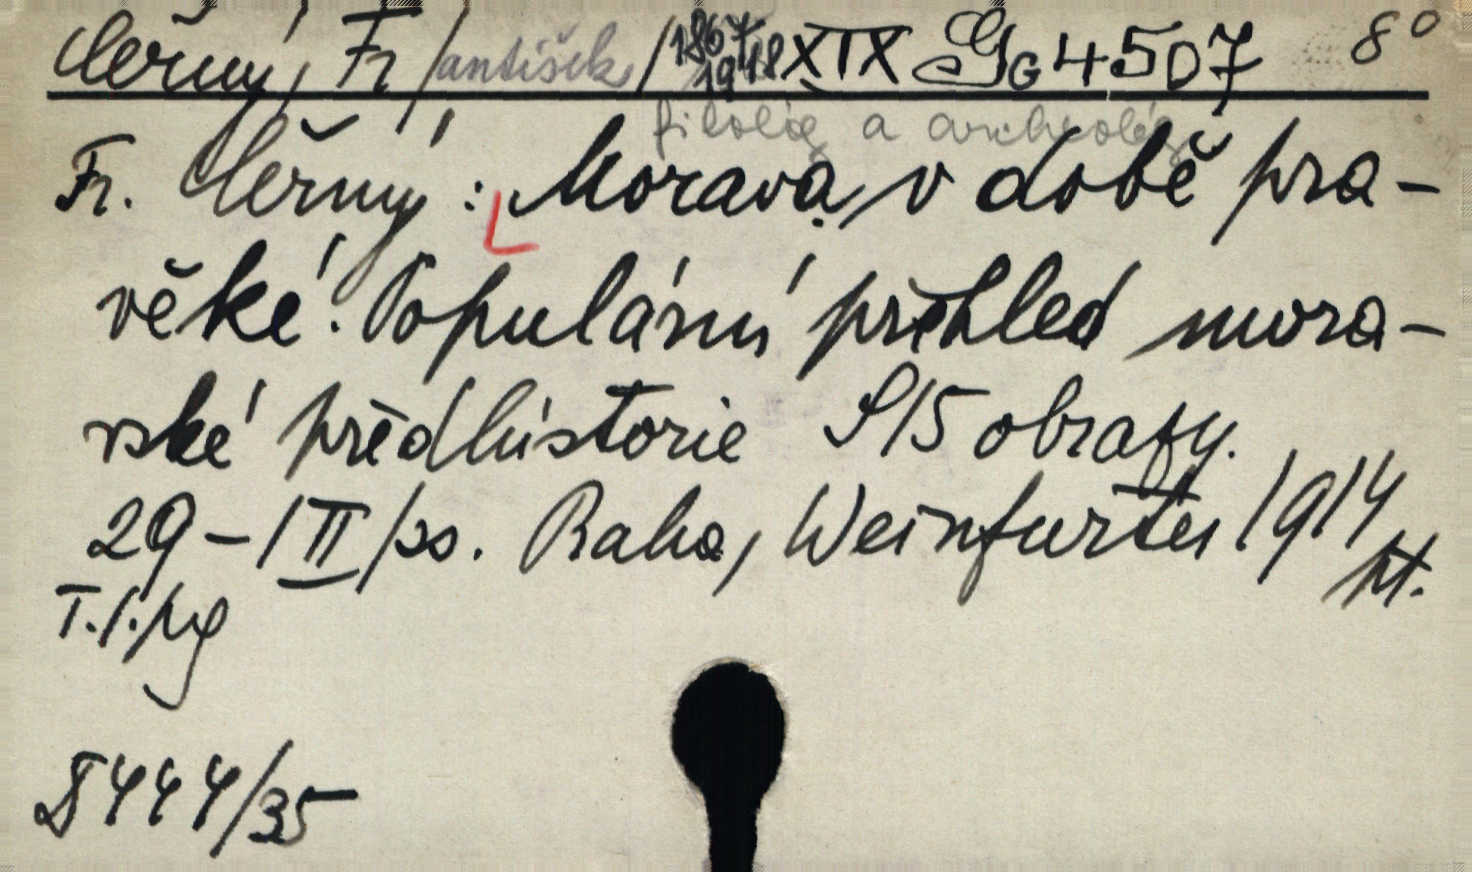 Černý, Fr/antišek/ 1867 1918 XIX Gg 4507 8°
filolog a archeolog
Fr. Černý: Morava v době pra-
věké. Populární přehled mora-
vské předhistorie S 15 obrazy.
29-/II/ss. Praha, Weinfurter 1914
T.1.
444/35